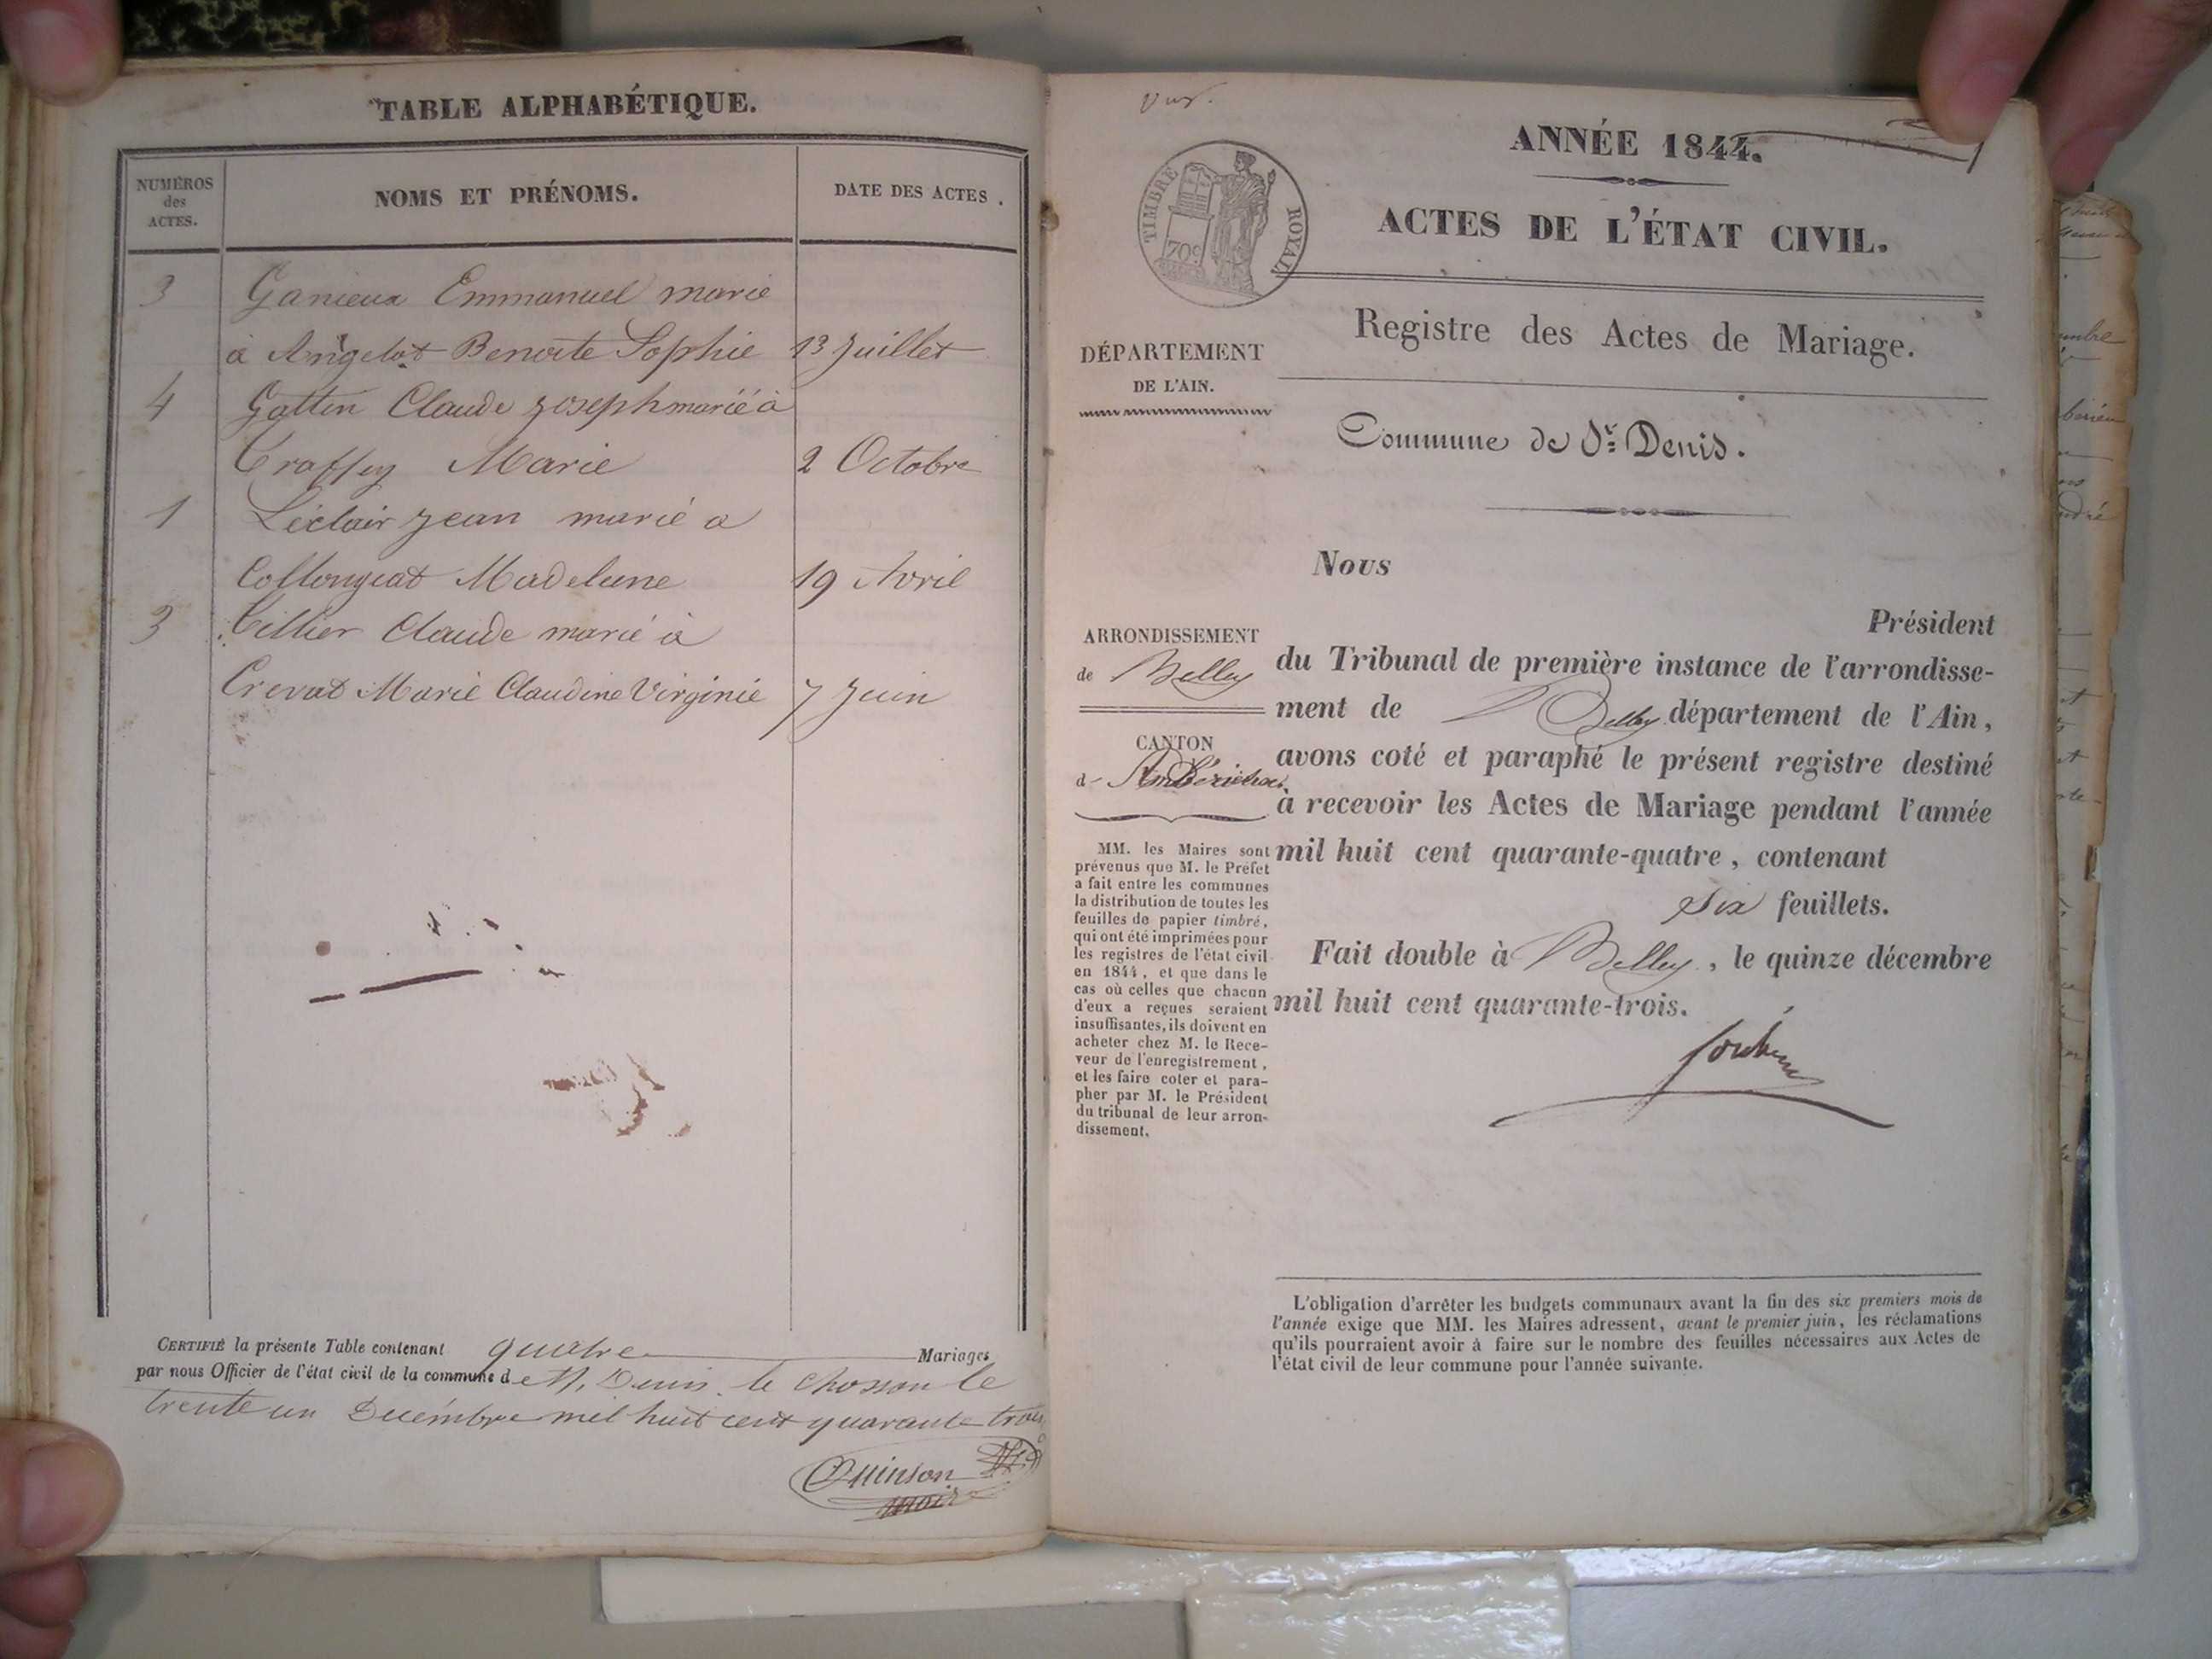 TABLE ALPHABÉTIQUE.
NUMÉROS
des
ACTES.
NOMS ET PRÉNOMS.
DATE DES ACTES.
3 Ganieux Emmanuel marié
à Angelot Benoite Sophie 13 Juillet
4 Gattin Claude Joseph marié à
Marie 2 Octobre
1 Léclair Jean marié a
Collongeat Madeleine 19 Avril
3 Tillier Claude marié à
Crevat Marie Claudine Virginie 7 Juin
CERTIFIÉ la présente Table contenant quatre Mariages
par nous Officier de l'état civil de la commune de St. Denis le Chosson le
trente un Decémbre mil huit cent quarante trois
Quinson
maire
vu
ANNÉE 1844.
ACTES DE L'ÉTAT CIVIL.
TIMBRE ROYAL
70c
Registre des Actes de Mariage.
DÉPARTEMENT
DE L'AIN.
Commune de St. Denis.
Nous
Président
ARRONDISSEMENT
de Belley
CANTON
d'Ambérieux
du Tribunal de première instance de l'arrondisse-
ment de Belley département de l'Ain,
avons coté et paraphé le présent registre destiné
à recevoir les Actes de Mariage pendant l'année
mil huit cent quarante-quatre, contenant
six feuillets.
Fait double à Belley, le quinze décembre
mil huit cent quarante-trois.
MM. les Maires sont
prévenus que M. le Préfet
a fait entre les communes
la distribution de toutes les
feuilles de papier timbré,
qui ont été imprimées pour
les registres de l'état civil
en 1844, et que dans le
cas où celles que chacun
d'eux a reçues seraient
insuffisantes, ils doivent en
acheter chez M. le Rece-
veur de l'enregistrement,
et les faire coter et para-
pher par M. le Président
du tribunal de leur arron-
dissement.
L'obligation d'arrêter les budgets communaux avant la fin des six premiers mois de
l'année exige que MM. les Maires adressent, avant le premier juin, les réclamations
qu'ils pourraient avoir à faire sur le nombre des feuilles nécessaires aux Actes de
l'état civil de leur commune pour l'année suivante.